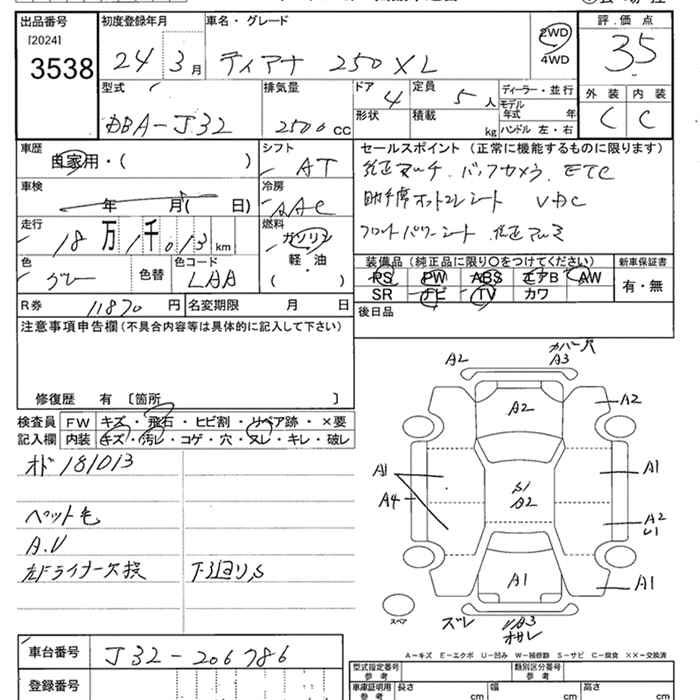 出品番号 初度登録年月 車名・グレード 評価点
[2024] 24年 3月 ティアナ 250XL 2WD 35
3538 4WD
型式 排気量 ドア 定員 ディーラー・並行 外装 内装
DBA-J32 2500cc 4 5人 モデル年式 年 C C
形状 積載 kg ハンドル 左・右
車歴 シフト セールスポイント(正常に機能するものに限ります)
自家用・( ) AT 純正マルチ. バックカメラ. ETC
車検 冷房 助手席オットコマンシート VDC
年 月( 日) AAC フロントパワーシート. 純正アルミ
走行 燃料
18万1千013km ガソリン 装備品(純正品に限り○をつけてください) 新車保証書
軽・油 PS PW ABS エアB AW 有・無
色 色替 色コード ( ) SR ナビ TV カワ
グレー LAA
R券 11870円 名変期限 月 日 後日品
注意事項申告欄(不具合内容等は具体的に記入して下さい)
修復歴 有 [箇所 ]
検査員 FW キズ・飛石・ヒビ割・リペア跡・×要
記入欄 内装 キズ・汚レ・コゲ・穴・スレ・キレ・破レ
オド181013
ペット毛
A.V
右ドライナー欠損 下廻りS
カバー穴
A2 A3
A2 A2
A1 S1 A1
A4 A2 A2
U1
A1 A1
スペア ズレ UA3
オサレ
A-キズ E-エクボ U-凹み W-補修跡 S-サビ C-腐食 XX-交換済
車台番号 J32-206786
登録番号
型式指定番号 参考 類別区分番号 参考
車庫証明用 参考 長さ cm 幅 cm 高さ cm